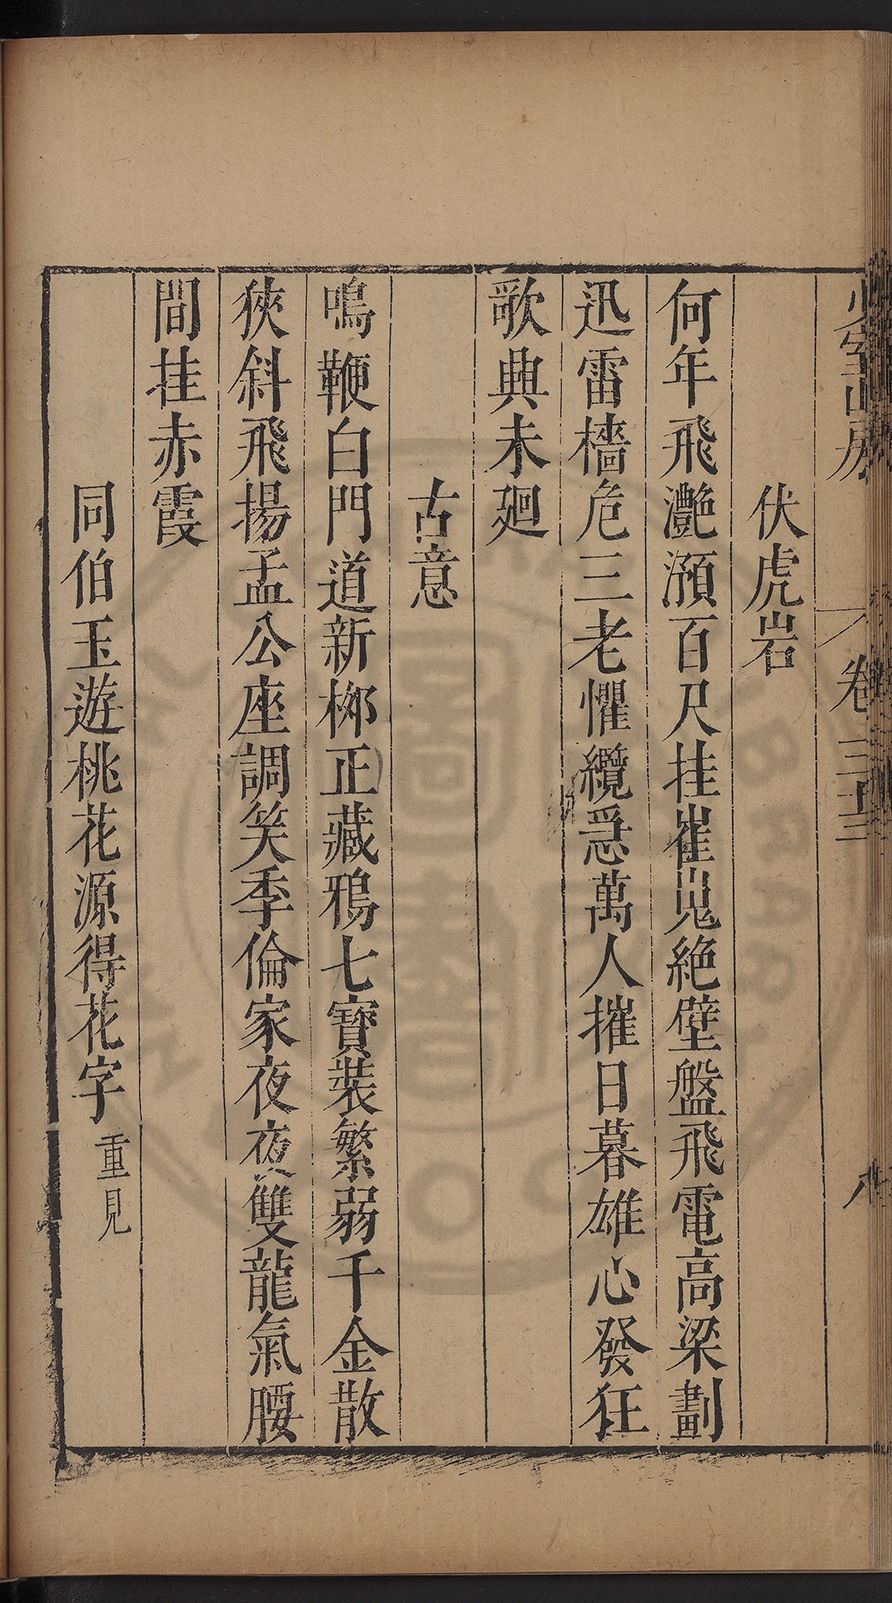 少室山房 卷三十三 八
伏虎岩
何年飛灔澦百尺挂崔嵬絶壁盤飛電高梁劃
迅雷檣危三老懼纜惡萬人摧日暮雄心發狂
歌興未廻
古意
鳴鞭白門道新桺正藏鴉七寶裝繁弱千金散
狹斜飛揚孟公座調笑季倫家夜夜雙龍氣腰
間挂赤霞
同伯玉遊桃花源得花字 重見